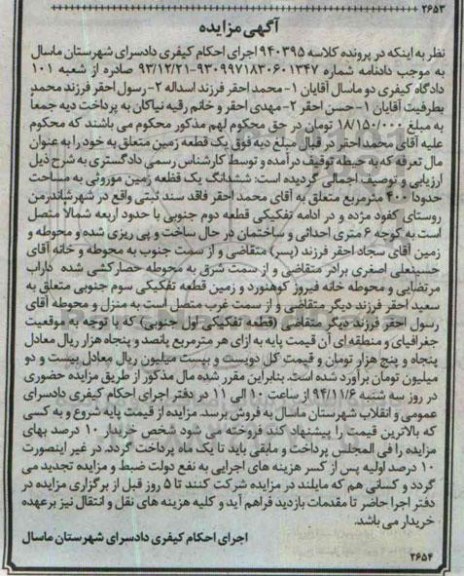 ۲۶۵۳
آگهی مزایده
نظر به اینکه در پرونده کلاسه ۹۴۰۳۹۵ اجرای احکام کیفری دادسرای شهرستان ماسال
به موجب دادنامه شماره ۹۳۰۹۹۷۱۸۳۰۶۰۱۳۴۷-۹۳/۱۲/۲۱ صادره از شعبه ۱۰۱
دادگاه کیفری دو ماسال آقایان ۱- محمد احقر فرزند اسداله ۲- رسول احقر فرزند محمد
بطرفیت آقایان ۱- حسن احقر ۲- مهدی احقر و خانم رقیه نیاکان به پرداخت دیه جمعاً
به مبلغ ۱۸/۱۵۰/۰۰۰ تومان در حق محکوم لهم مذکور محکوم می باشند که محکوم
علیه آقای محمد احقر در قبال مبلغ دیه فوق یک قطعه زمین متعلق به خود را به عنوان
مال تعرفه که به حیطه توقیف درآمده و توسط کارشناس رسمی دادگستری به شرح ذیل
ارزیابی و توصیف اجمالی گردیده است: ششدانگ یک قطعه زمین موروثی به مساحت
حدوداً ۴۰۰ مترمربع متعلق به آقای محمد احقر فاقد سند ثبتی واقع در شهرشاندرمن
روستای کفود مژده و در ادامه تفکیکی قطعه دوم جنوبی با حدود اربعه شمالاً متصل
است به کوچه ۶ متری احداثی و ساختمان در حال ساخت و پی ریزی شده و محوطه و
زمین آقای سجاد احقر فرزند (پسر) متقاضی و از سمت جنوب به محوطه و خانه آقای
حسینعلی اصغری برادر متقاضی و از سمت شرق به محوطه حصارکشی شده داراب
مرتضایی و محوطه خانه فیروز کوهنورد و زمین قطعه تفکیکی سوم جنوبی متعلق به
سعید احقر فرزند دیگر متقاضی و از سمت غرب متصل است به منزل و محوطه آقای
رسول احقر فرزند دیگر متقاضی (قطعه تفکیکی اول جنوبی) که با توجه به موقعیت
جغرافیای و منطقه ای آن قیمت پایه به ازای هر مترمربع پانصد و پنجاه هزار ریال معادل
پنجاه و پنج هزار تومان و قیمت کل دویست و بیست میلیون ریال معادل بیست و دو
میلیون تومان برآورد شده است. بنابراین مقرر شده مال مذکور از طریق مزایده حضوری
در روز سه شنبه ۹۴/۱۱/۶ از ساعت ۱۰ الی ۱۱ در دفتر اجرای احکام کیفری دادسرای
عمومی و انقلاب شهرستان ماسال به فروش برسد. مزایده از قیمت پایه شروع و به کسی
که بالاترین قیمت را پیشنهاد کند فروخته می شود شخص خریدار ۱۰ درصد بهای
مزایده را فی المجلس پرداخت و مابقی باید تا یک ماه پرداخت گردد. در غیر اینصورت
۱۰ درصد اولیه پس از کسر هزینه های اجرایی به نفع دولت ضبط و مزایده تجدید می
گردد و کسانی هم که مایلند در مزایده شرکت کنند تا ۵ روز قبل از برگزاری مزایده در
دفتر اجرا حاضر تا مقدمات بازدید فراهم آید و کلیه هزینه های نقل و انتقال نیز برعهده
خریدار می باشد.
اجرای احکام کیفری دادسرای شهرستان ماسال
۲۶۵۴